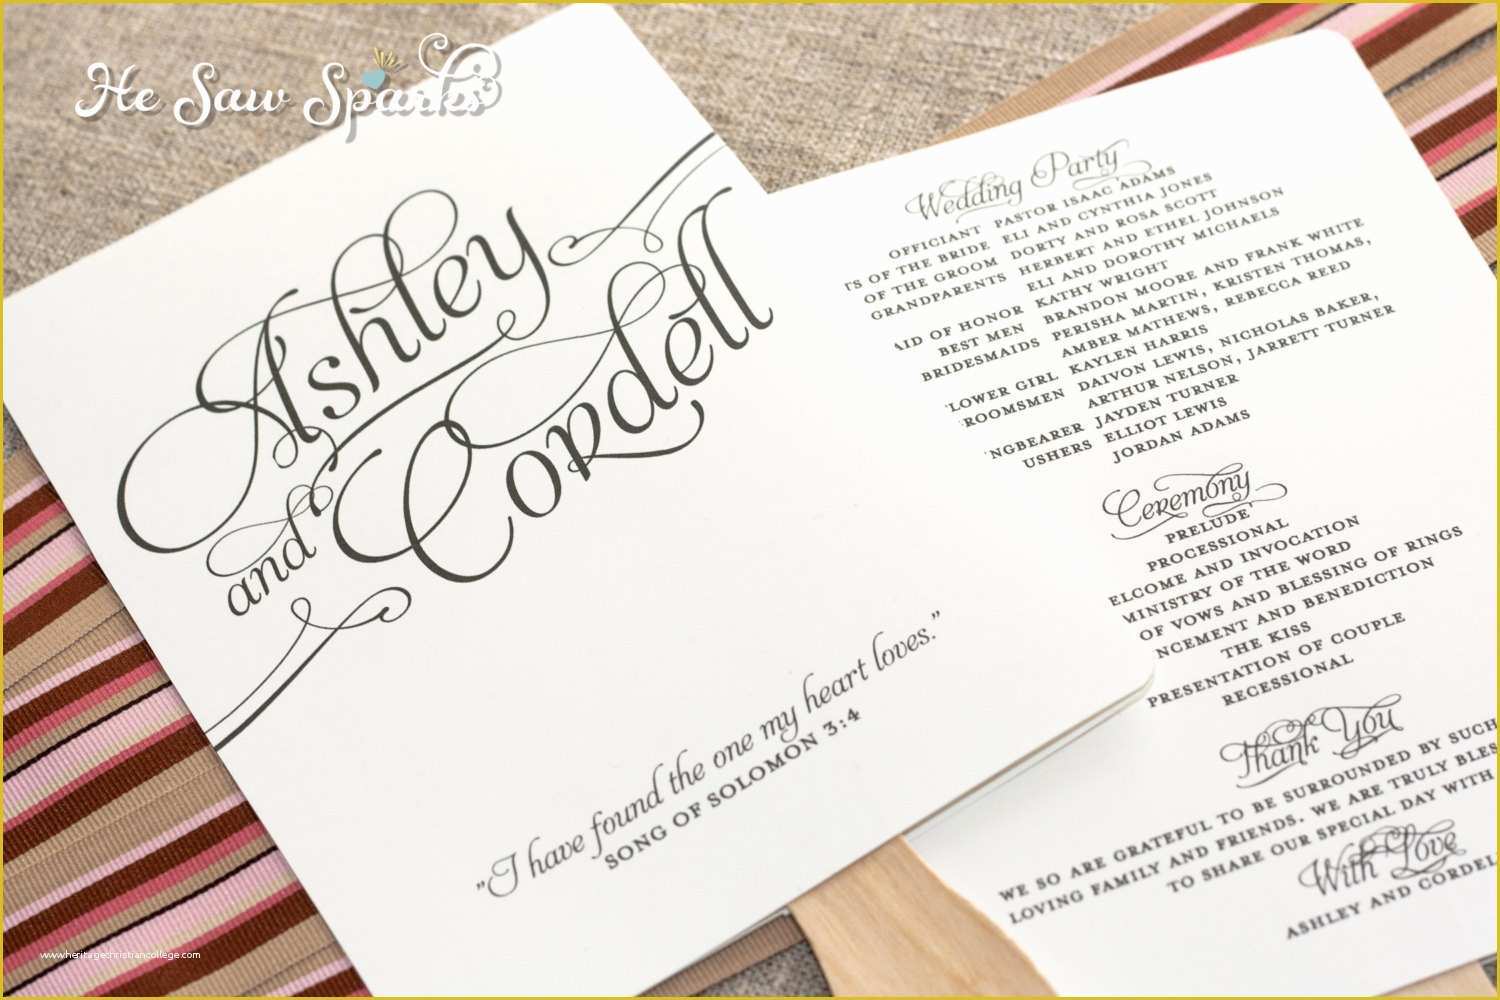 He Saw Sparks
Ashley
and Cordell
"I have found the one my heart loves."
SONG OF SOLOMON 3:4
Wedding Party
OFFICIANT PASTOR ISAAC ADAMS
TS OF THE BRIDE ELI AND CYNTHIA JONES
OF THE GROOM DORTY AND ROSA SCOTT
GRANDPARENTS HERBERT AND ETHEL JOHNSON
ELI AND DOROTHY MICHAELS
AID OF HONOR KATHY WRIGHT
BEST MEN BRANDON MOORE AND FRANK WHITE
BRIDESMAIDS PERISHA MARTIN, KRISTEN THOMAS,
AMBER MATHEWS, REBECCA REED
LOWER GIRL KAYLEN HARRIS
ROOMSMEN DAIVON LEWIS, NICHOLAS BAKER,
ARTHUR NELSON, JARRETT TURNER
NGBEARER JAYDEN TURNER
USHERS ELLIOT LEWIS
JORDAN ADAMS
Ceremony
PRELUDE
PROCESSIONAL
ELCOME AND INVOCATION
MINISTRY OF THE WORD
OF VOWS AND BLESSING OF RINGS
NCEMENT AND BENEDICTION
THE KISS
PRESENTATION OF COUPLE
RECESSIONAL
Thank You
WE SO ARE GRATEFUL TO BE SURROUNDED BY SUCH
LOVING FAMILY AND FRIENDS. WE ARE TRULY BLES
TO SHARE OUR SPECIAL DAY WITH
With Love
ASHLEY AND CORDEL
www.heritagechristiancollege.com